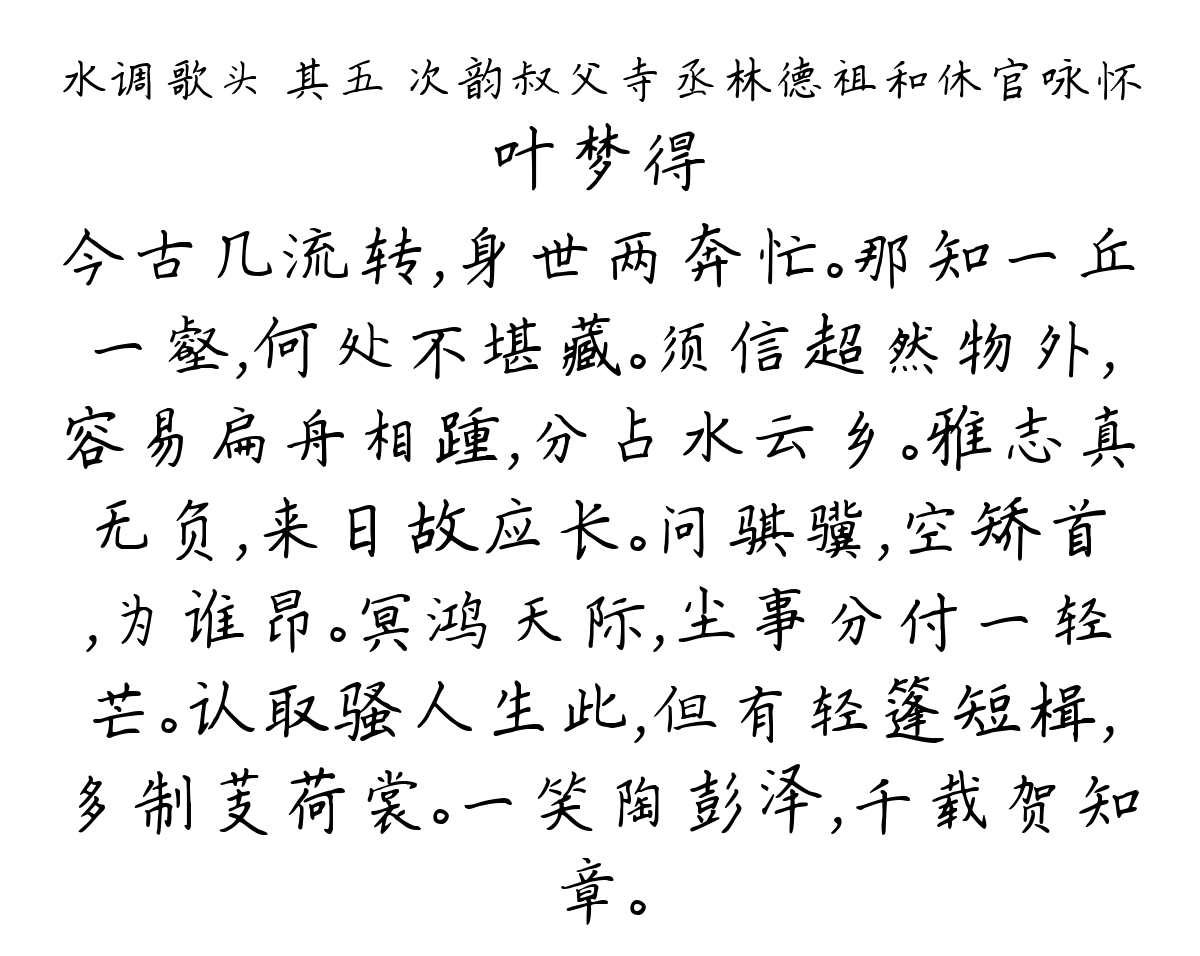 水调歌头 其五 次韵叔父寺丞林德祖和休官咏怀
叶梦得
今古几流转,身世两奔忙。那知一丘
一壑,何处不堪藏。须信超然物外,
容易扁舟相踵,分占水云乡。雅志真
无负,来日故应长。问骐骥,空矫首
,为谁昂。冥鸿天际,尘事分付一轻
芒。认取骚人生此,但有轻篷短楫,
多制芰荷裳。一笑陶彭泽,千载贺知
章。